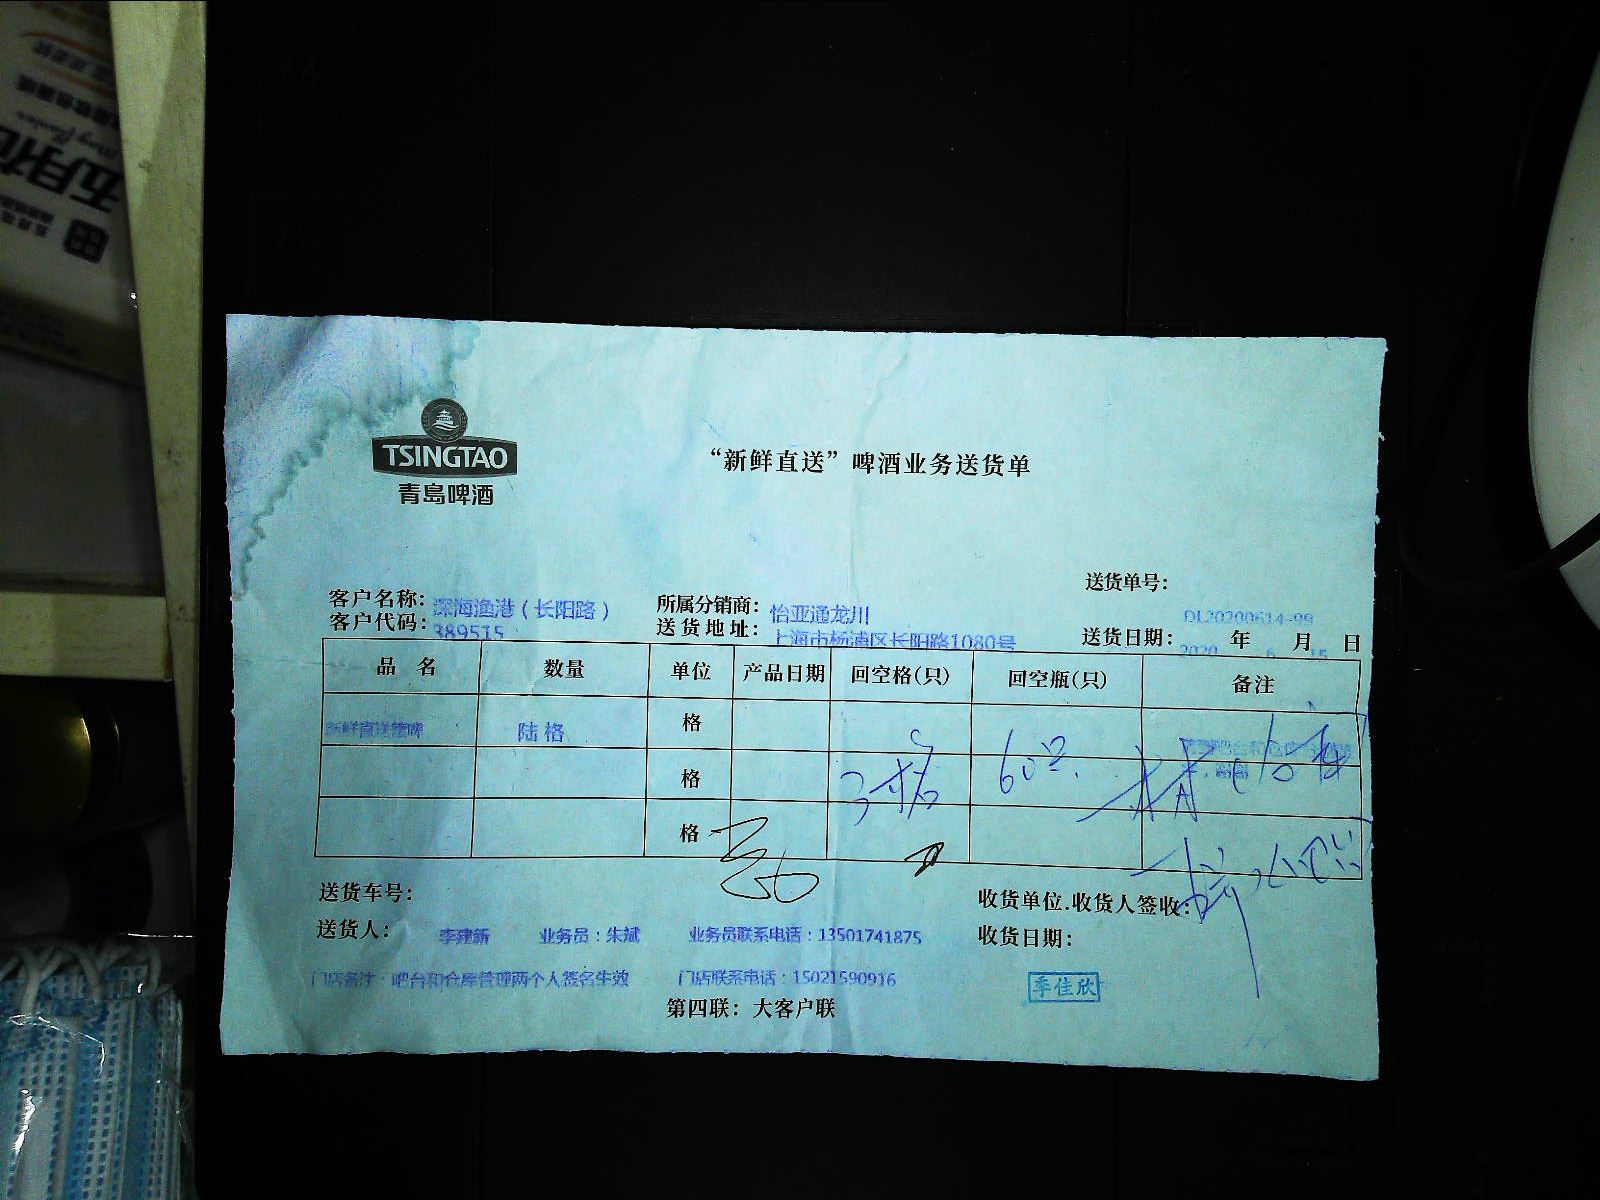 五月花
TSINGTAO
青島啤酒
“新鲜直送”啤酒业务送货单
送货单号：
DL20200614-99
客户名称：深海渔港（长阳路）
所属分销商：怡亚通龙川
客户代码：389515
送货地址：上海市杨浦区长阳路1080号
送货日期：2020年6月15日
品 名 数量 单位 产品日期 回空格(只) 回空瓶(只) 备注
新鲜直送 陆格 格
格 3格 60只
格
送货车号：
收货单位.收货人签收：
送货人：李建新 业务员：朱斌 业务员联系电话：13501741875
收货日期：
门店备注：吧台和仓库管理两个人签名生效 门店联系电话：15021590916
季佳欣
第四联：大客户联